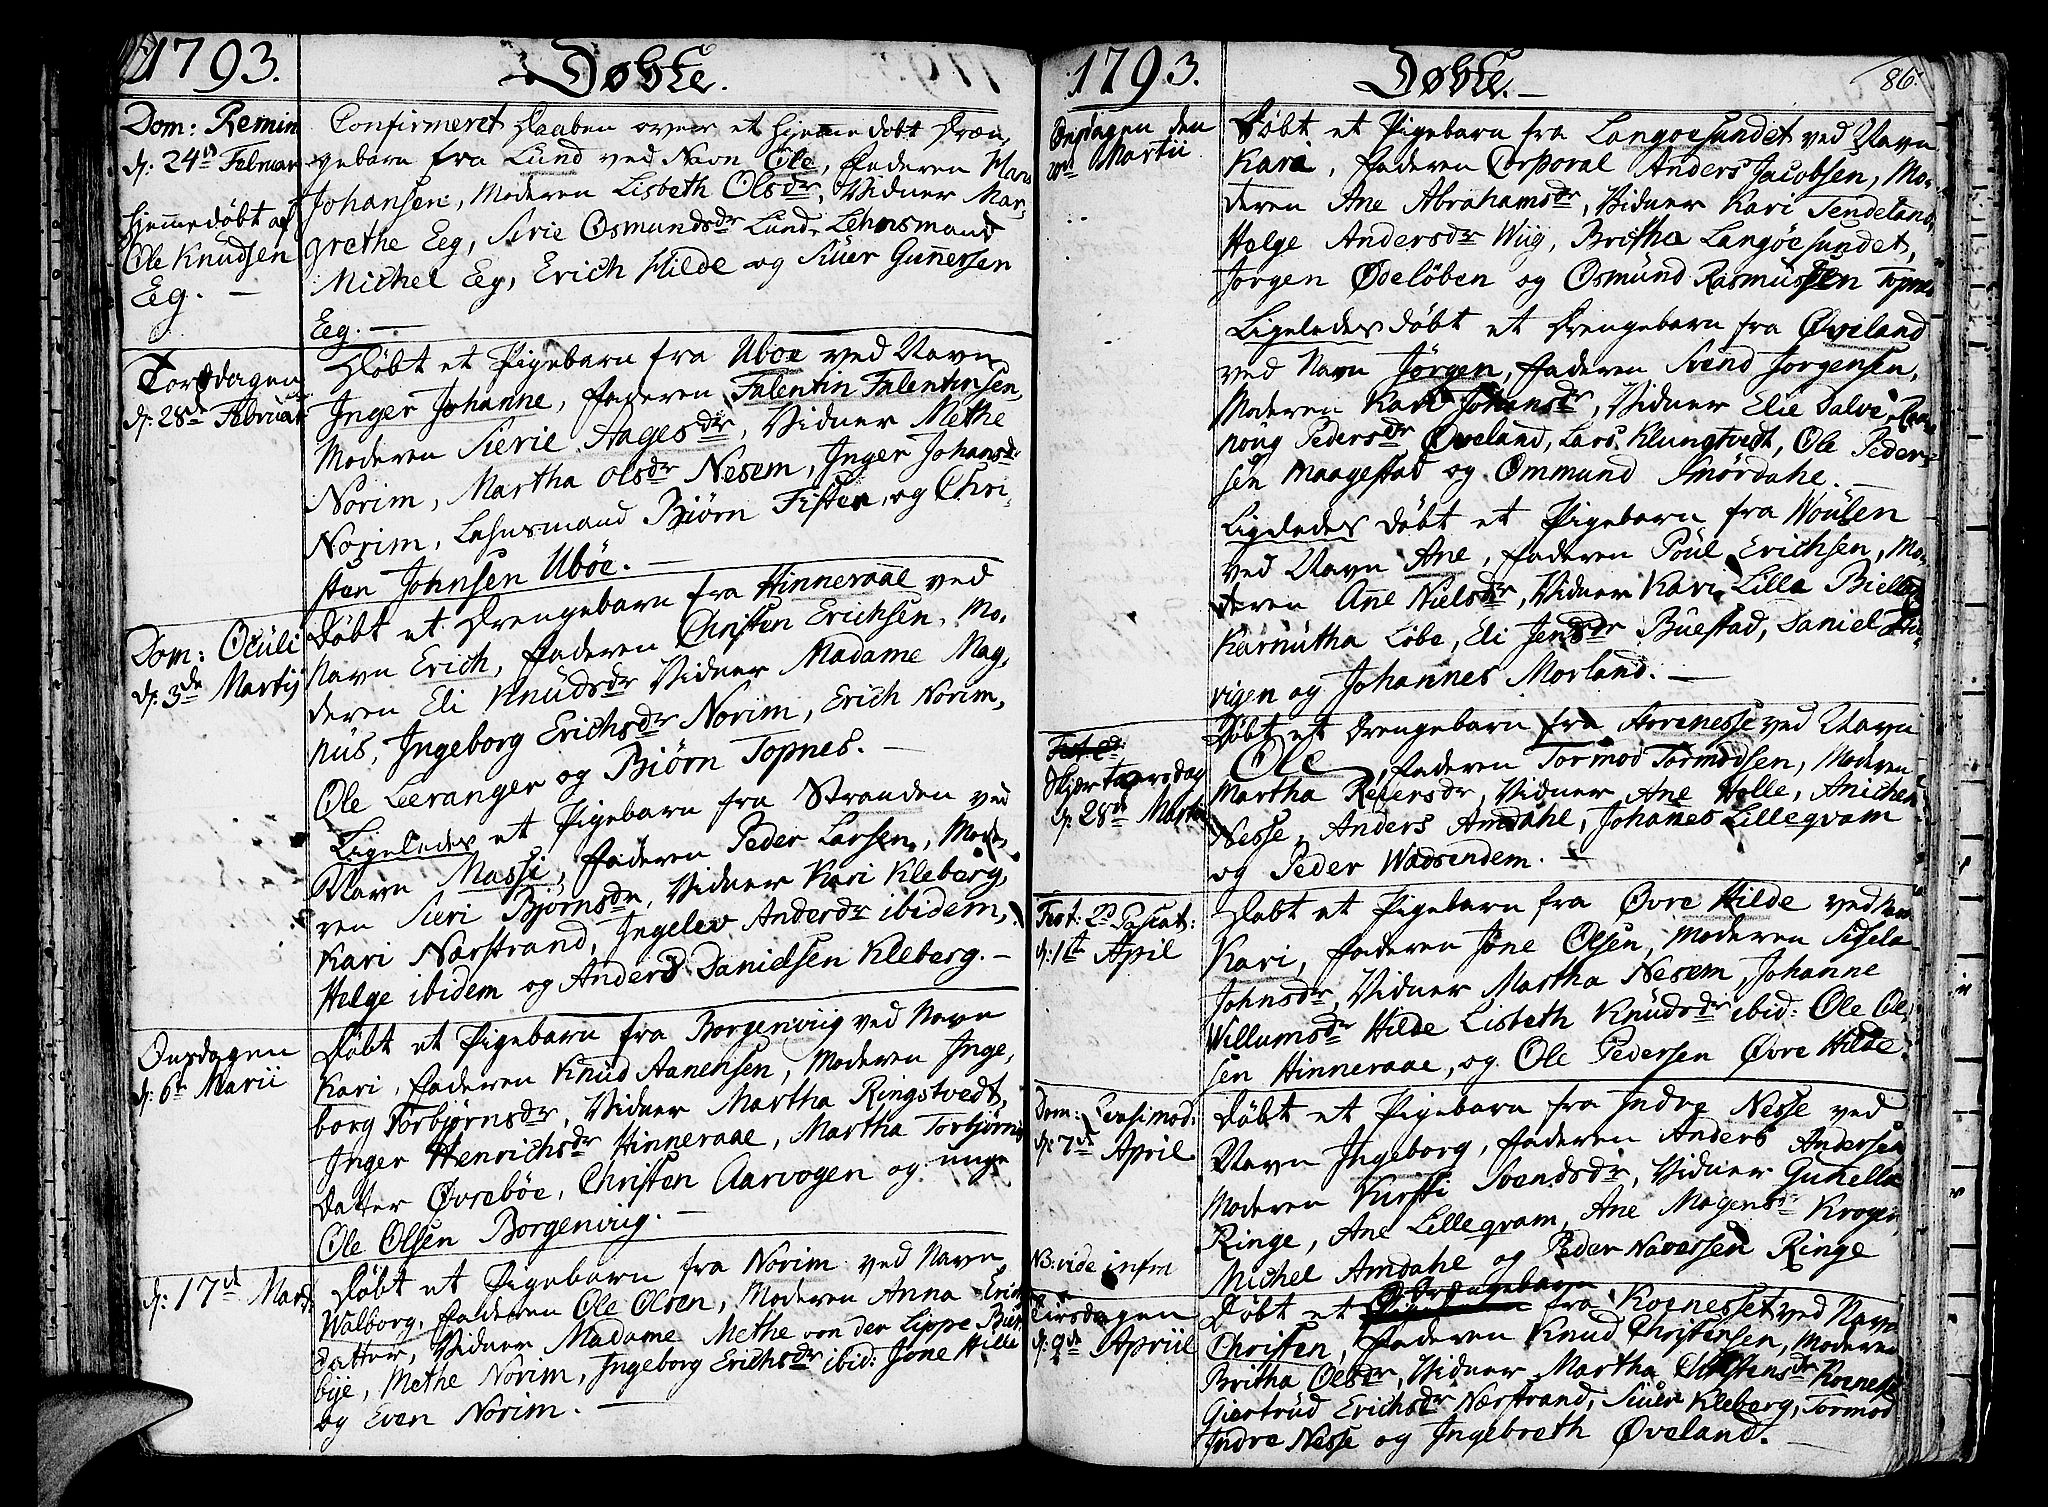 1793.
Døbte.
Dom: Remin
d: 24de Februar
Hjemmedøbt af
Ole Knudsen
Eeg. —
Confirmeret Daaben over et hjemme døbt Dren-
gebarn fra Lund ved Navn Ole, Faderen
Johansen, Moderen Lisbeth Olsdr, Vidner Mar-
grethe Eeg, Sirie Osmundsdr Lund, Lehnsmand
Michel Eeg, Erich Hilde og Siuer Gunnersen
Eeg. —
Torsdagen
d: 28de Februar
Døbt et Pigebarn fra Uboe ved Navn
Inger Johanne, Faderen Falentin Falentinsen,
Moderen Sierie Aagesdr, Vidner Methe
Norim, Martha Olsdr Nesem, Inger Johansdr
Norim, Lehnsmand Biørn Fister, og Chri-
sten Johnsen Ubøe. —
Dom: Oculi
d: 3de Martij
Døbt et Drengebarn fra Hinneraae ved
Navn Erich, Faderen Christen Erichsen, Mo-
deren Eli Knudsdr Vidner Madame Mag-
nus, Ingeborg Erichsdr Norim, Erich Norim,
Ole Leeranger og Biørn Topnes. —
Ligeledes et Pigebarn fra Stranden ved
Navn Massi, Faderen Peder Larsen, Mode-
ren Sieri Bjørnsdr, Vidner Kari Kleberg,
Kari Nærstrand, Ingelev Andersdr ibidem,
Helge ibidem og Anders Danielsen Kleberg. —
Onsdagen
d: 6te Martii
Døbt et Pigebarn fra Borgenviig ved Navn
Kari, Faderen Knud Aanensen, Moderen Inge-
borg Torbjørnsdr, Vidner Martha Ringstvedt,
Inger Henrichsdr Hinneraae, Martha Torbjørns
Datter Øvrebøe, Christen Aarvogen og unge
Ole Olsen Borgenviig. —
d: 17de Mart
Døbt et Pigebarn fra Norim ved Navn
Walborg, Faderen Ole Olsen, Moderen Anna Erichs
datter, Vidner Madame Methe von der Lippe
bye, Methe Norim, Ingeborg Erichsdr ibid: Jone Hille
og Even Norim. —
1793.
Døbte. —
86.
Onsdagen den
Martii
Døbt et Pigebarn fra Langøesundet ved Navn
Kari, Faderen Corporal Anders Jacobsen, Mo-
deren Ane Abrahamsdr, Vidner Kari Tendeland,
Helge Andersdr Wiig, Britha Langøesundet,
Jørgen Ødeløben og Osmund Rasmussen Topnes
Ligeledes døbt et Drengebarn fra Øveland
ved Navn Jørgen, Faderen Svend Jorgensen,
Moderen Kari Johansdr, Vidner Elie Salve,
Pedersdr Øveland, Lars Klungtvedt, Ole Peder-
sen Maagestad og Ommund Snørdahe. —
Ligeledes døbt et Pigebarn fra Woulen
ved Navn Ane, Faderen Poul Erichsen, Mo-
deren Ane Nielsdr, Vidner Kari Lilla
Karnutha Løbe, Eli Jensdr Buestad, Daniel
vigen og Johannes Morland. —
Skjertorsdag
d: 28de Martii
Døbt et Drengebarn fra ved Navn
Ole, Faderen Tormod Tormodsen, Moderen
Martha Reiersdr, Vidner Ane Holle, Anichen
Nesse, Anders Amdahl, Johanes Lilleqvam
og Peder Wadsendem. —
Fest: 2d Pascat:
d: 1te April
Døbt et Pigebarn fra Øvre Hilde ved Navn
Kari, Faderen Jone Olsen, Moderen Sisela
Johnsdr, Vidner Martha Nesem, Johanne
Willumsdr Hilde Lisbeth Knudsdr ibid: Ole Ol-
sen Hinneraae, og Ole Pedersen Øvre Hilde.
Dom: Qvasimod:
d: 7de April
Døbt et Pigebarn fra Indre Nesse ved
Navn Ingeborg, Faderen Anders Andersen
Moderen Kirsti Svendsdr, Vidner Gunella
Ringe, Ane Lilleqvam, Ane Mogensdr
Michel Amdahl og Peder Ringe
NB: vide infra
Tirsdagen
d: 9de Apriil
Døbt et Drengebarn fra Koenesset ved Navn
Christen, Faderen Knud Christensen, Moderen
Britha Olsdr, Vidner Martha Koenesse
Giertrud Erichsdr Nærstrand, Siuer Kleberg, Tormod
Indre Nesse og Ingebreth Øveland. —